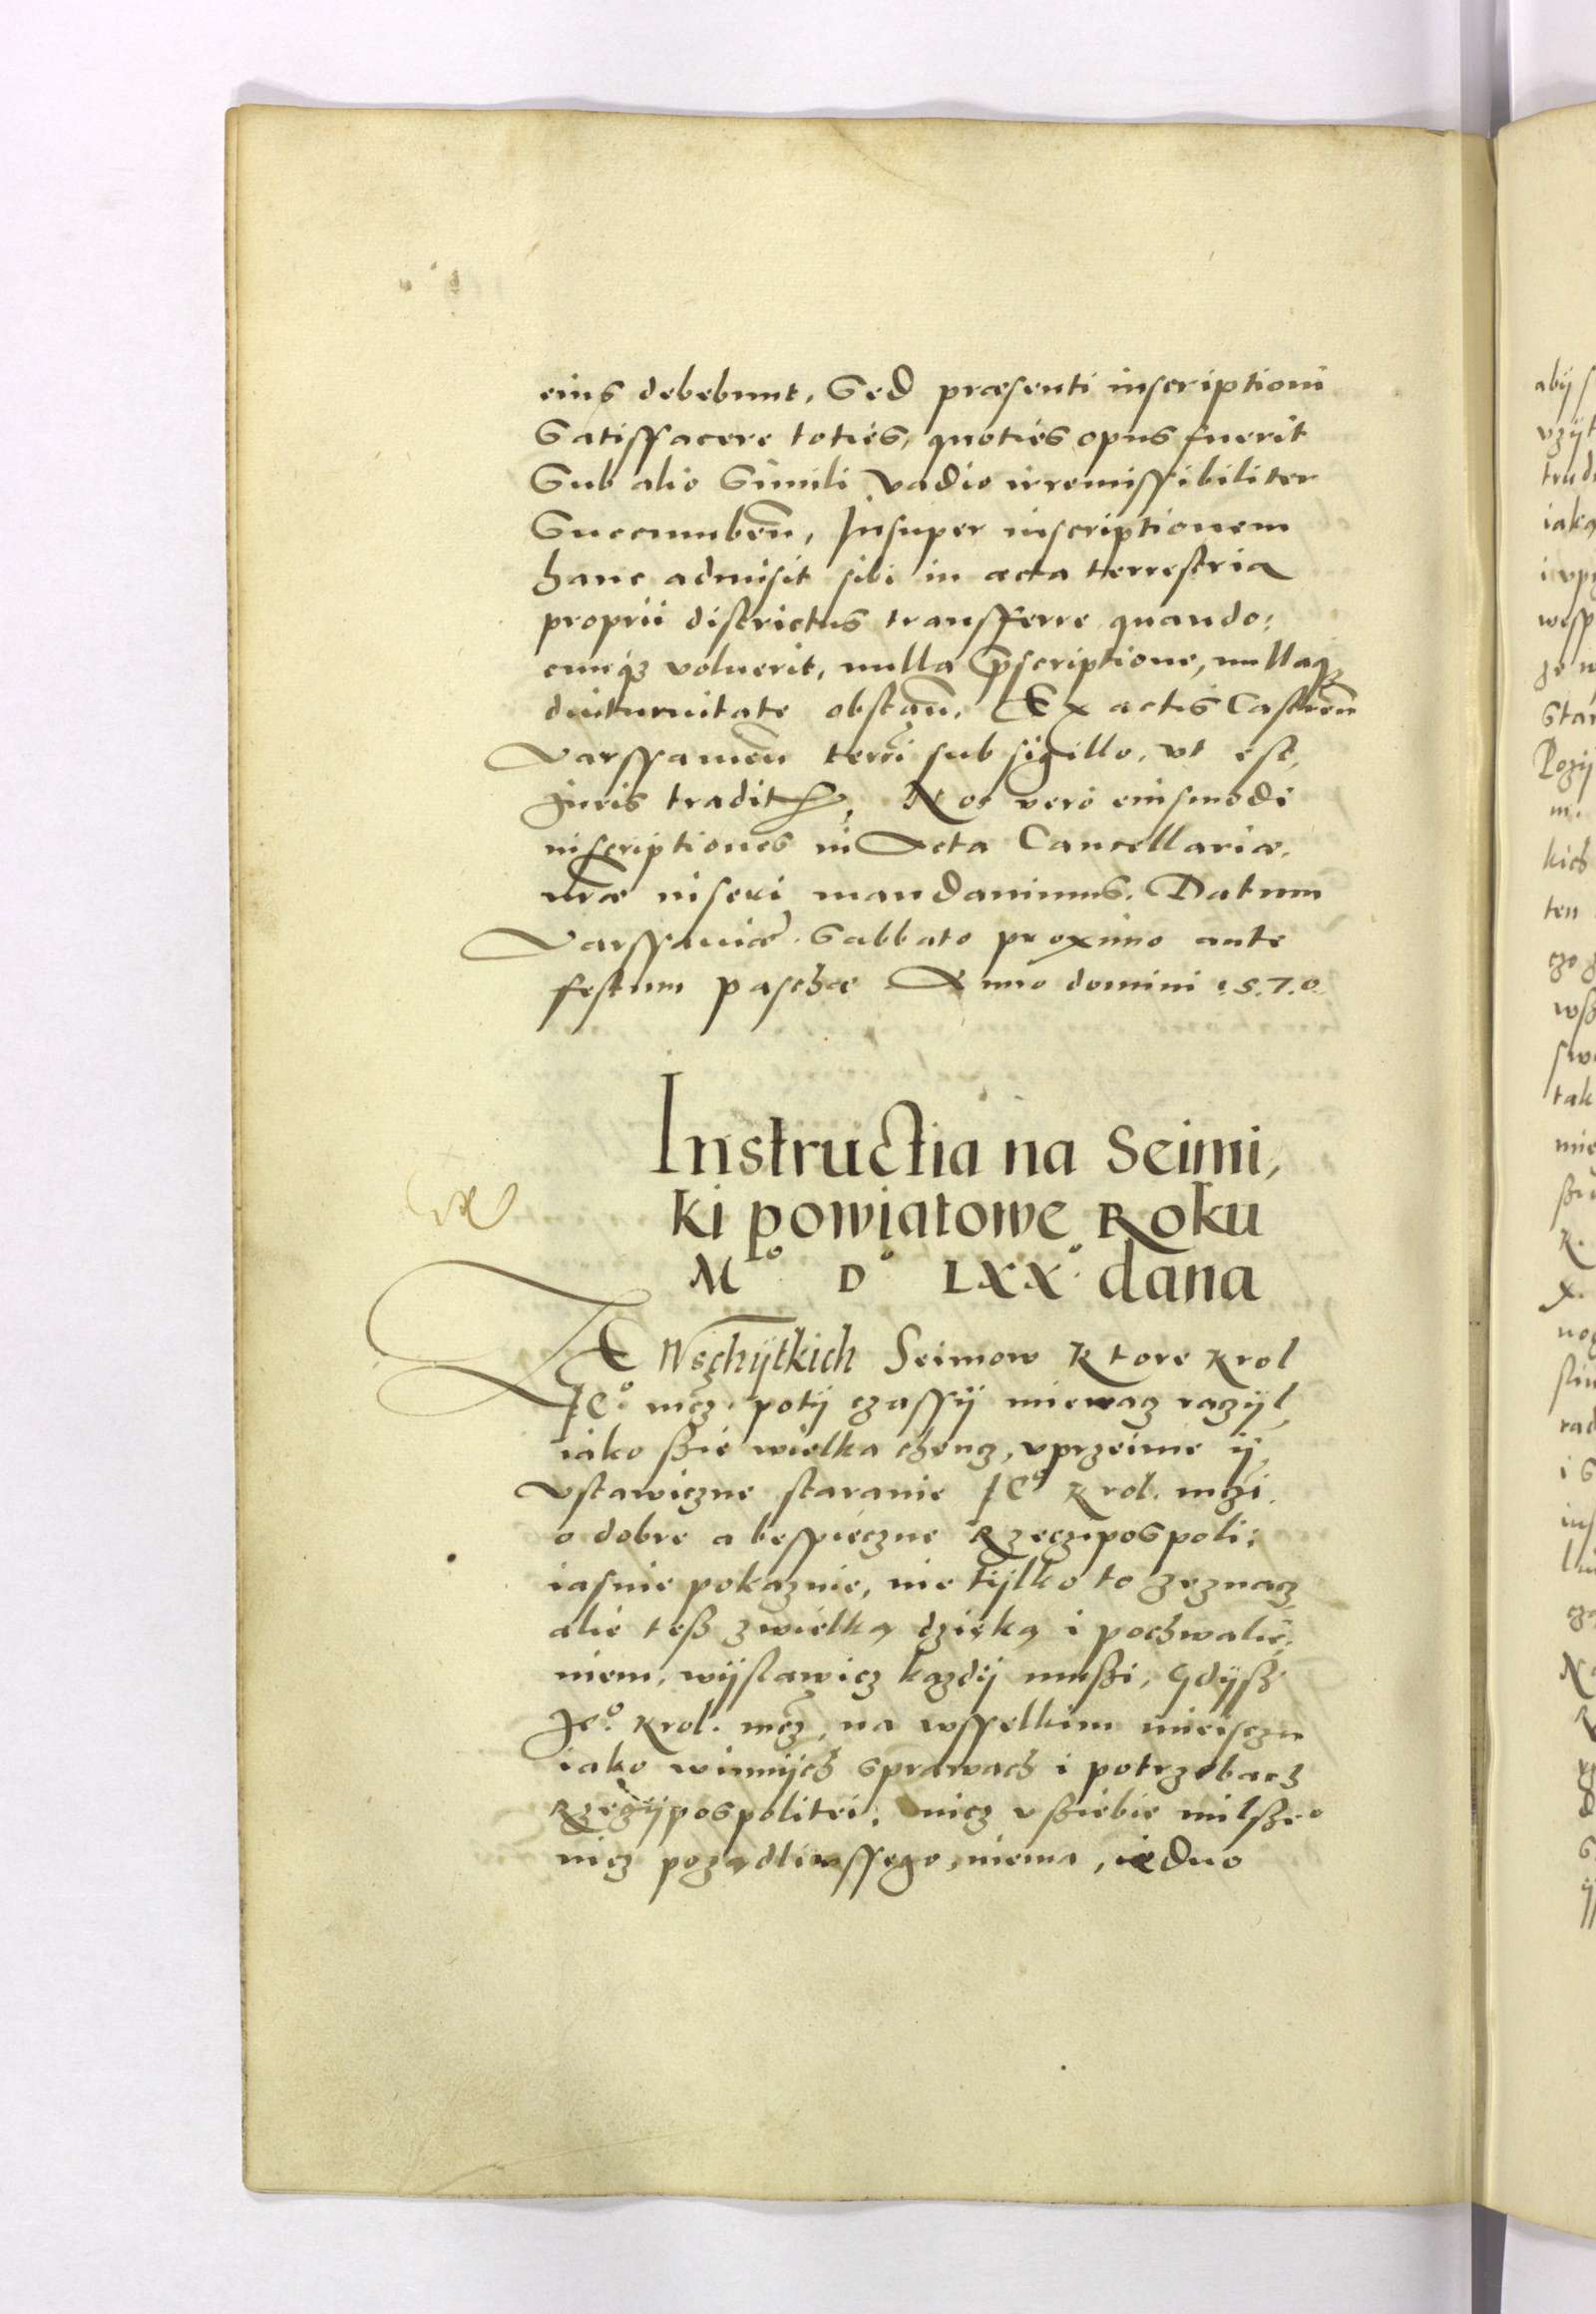 eius debebunt, Sed præsenti inscriptioni
Satisfacere toties, quoties opus fuerit
Sub alio Simili vadio irremissibiliter
Succumbeñ, Insuper inscriptionem
hanc admisit sibi in acta terrestria
proprii districtus transferre quando:
cunqȝ voluerit, nulla p̄scriptione, nullaqȝ
diuturnitate obstañ, Ex actis Castreñ
Varssauieñ terr̃i sub sigillo, vt est,
Juris tradit. Nos vero eiusmodi
inscriptiones in Acta Cancellariæ,
nr̃æ inseri mandauimus. Datum
Varssauiæ. Sabbato proximo ante
festum paschæ Anno domini 1.5.7.0.
Instructia na Seimi,
ki powiatowe Roku
M° D° LXX° dana
ZE Wschÿtkich Seimow Ktore Krol
JE° mcz. potÿ czassÿ miewacz raczÿl
iako ßie wielka chencz, vprzeime ÿ
vstawiczne staranie JE° Krol. mczi
o dobre a bespieczne Rzeczipospoli:
iasnie pokaznie, nie tÿlko to zeznacz
alie teß zwielką dzięką i pochwalie,
niem, wÿslawicz kazdÿ mußi, Gdÿß
Je° Krol. mcz, na wsselkim mieisczu
iako winnÿch sprawach i potrzebach
Rzeczÿpospolitei, nicz vßiebie milße°
nicz poządliwssego, niema, iedno
abÿ